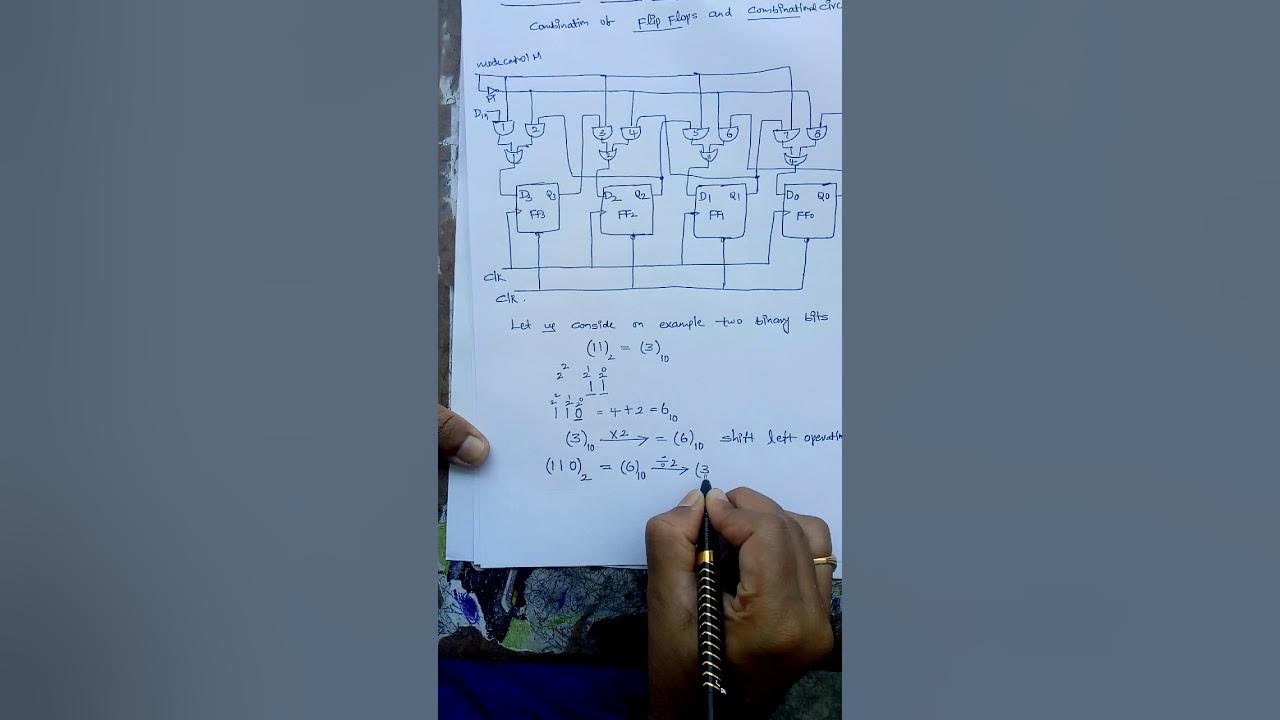 Combination of Flip Flops and Combinational circ
mode control M
Din
1 2 3 4 5 6 7 8
D3 Q3 D2 Q2 D1 Q1 D0 Q0
FF3 FF2 FF1 FF0
Clk
ClR.
Let us conside on example two binary bits
(11)₂ = (3)₁₀
2² 2¹ 2⁰
1 1
2² 2¹ 2⁰
1 1 0 = 4+2 = 6₁₀
(3)₁₀ ×2 → = (6)₁₀ shift left operation
(110)₂ = (6)₁₀ ÷2 → (3